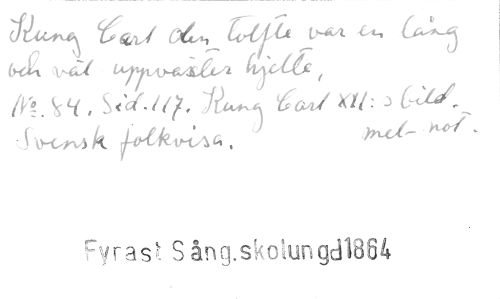 Kung Carl den tolfte var en lång
och väl uppväxter hjelte,
No. 84. Sid. 117. Kung Carl XII:s bild.
Svensk folkvisa. mel-not.
Fyrast Sång.skolungd1864